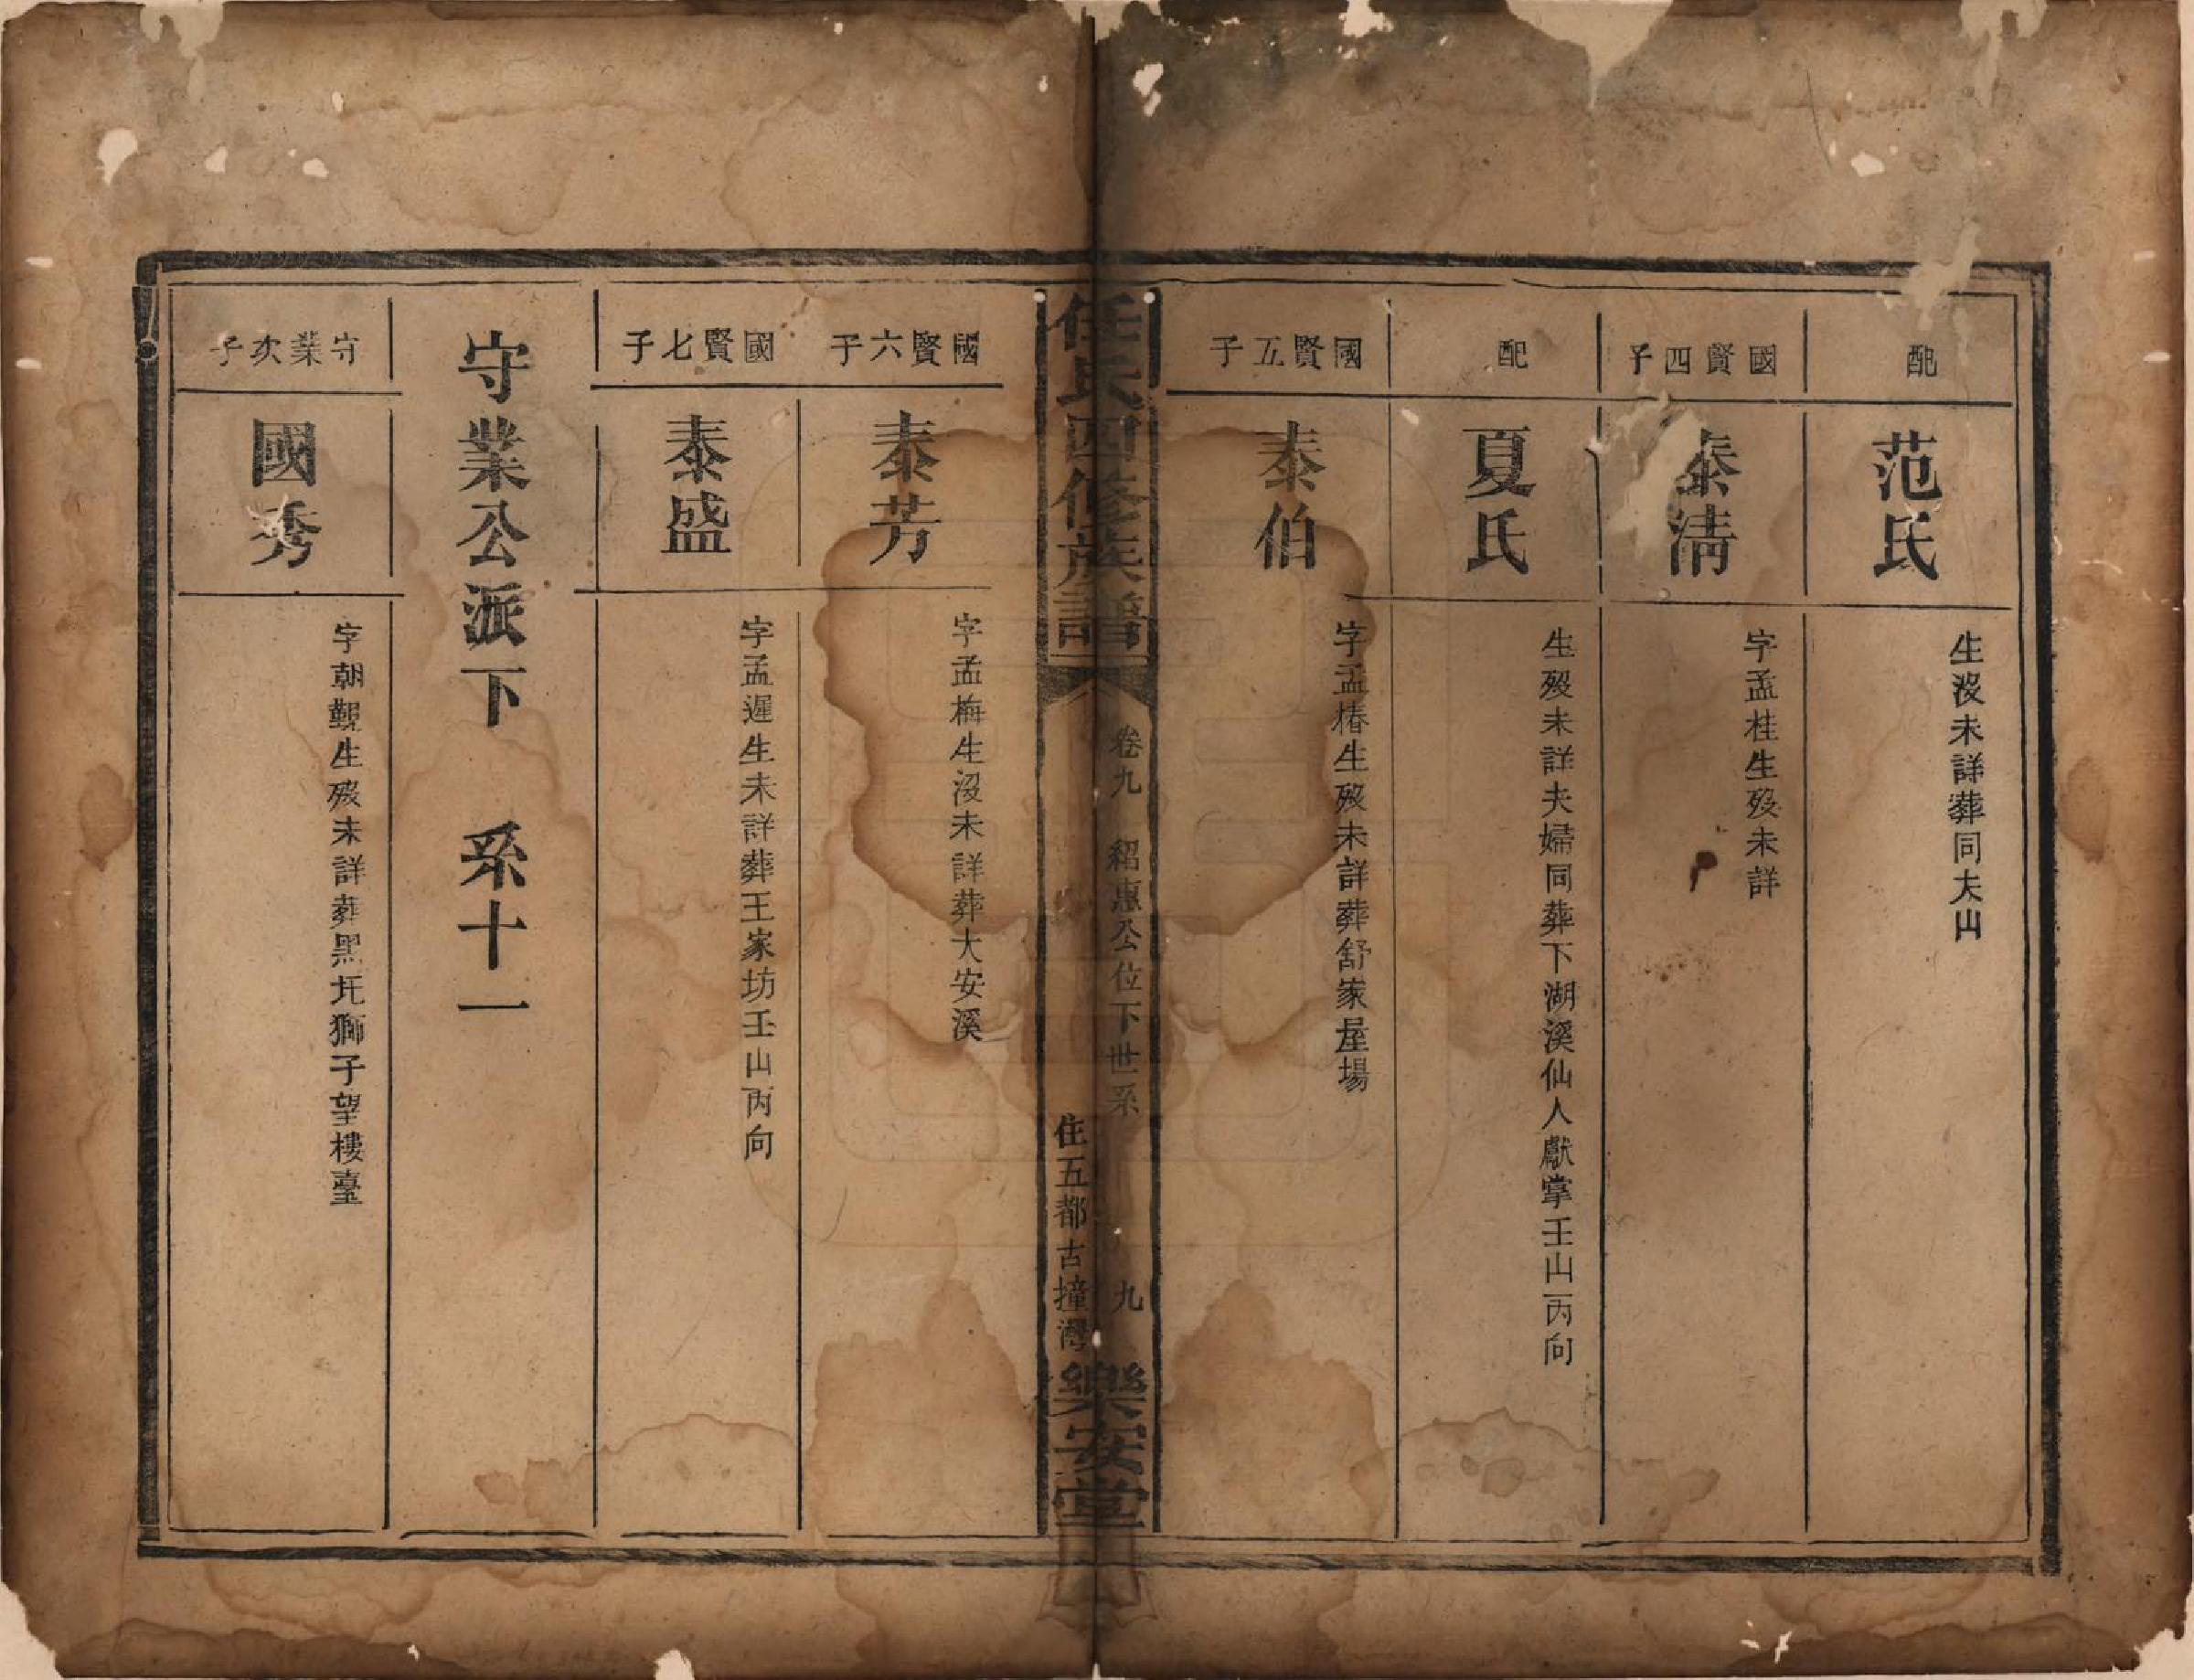 配
范氏
生没未詳葬同夫山
國賢四子
泰清
字孟桂生歿未詳
配
夏氏
生歿未詳夫婦同葬下湖溪仙人獻掌壬山丙向
國賢五子
泰伯
字孟椿生歿未詳葬舒家屋場
任氏四修族譜
卷九 紹惠公位下世系
九
住五都古撞灣
樂安堂
國賢六子
泰芳
字孟梅生沒未詳葬大安溪
國賢七子
泰盛
字孟遲生未詳葬王家坊壬山丙向
守業公派下 系十一
守業次子
國秀
字朝覲生歿未詳葬黑圫獅子望樓臺